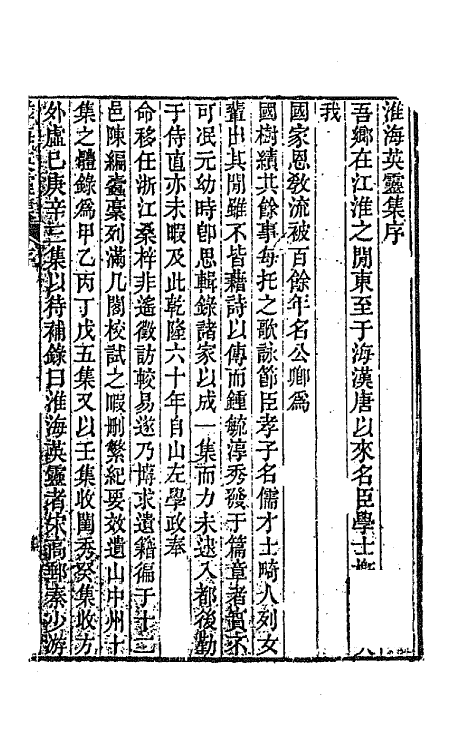 淮海英靈集序
吾鄉在江淮之閒東至于海漢唐以來名臣學士
我
國家恩敎流被百餘年名公卿爲
國樹績其餘事每托之歌詠節臣孝子名儒才士畸人列女
輩出其閒雖不皆藉詩以傳而鍾毓淳秀發于篇章者實不
可泯元幼時卽思輯錄諸家以成一集而力未逮入都後勤
于侍直亦未暇及此乾隆六十年自山左學政奉
命移任浙江桑梓非遙徵訪較易遂乃博求遺籍徧于十二
邑陳編蠹稾列滿几閣校試之暇刪繁紀要效遺山中州十
集之體錄爲甲乙丙丁戊五集又以壬集收閨秀癸集收方
外虛己庚辛三集以待補錄曰淮海英靈者宋高郵秦少游